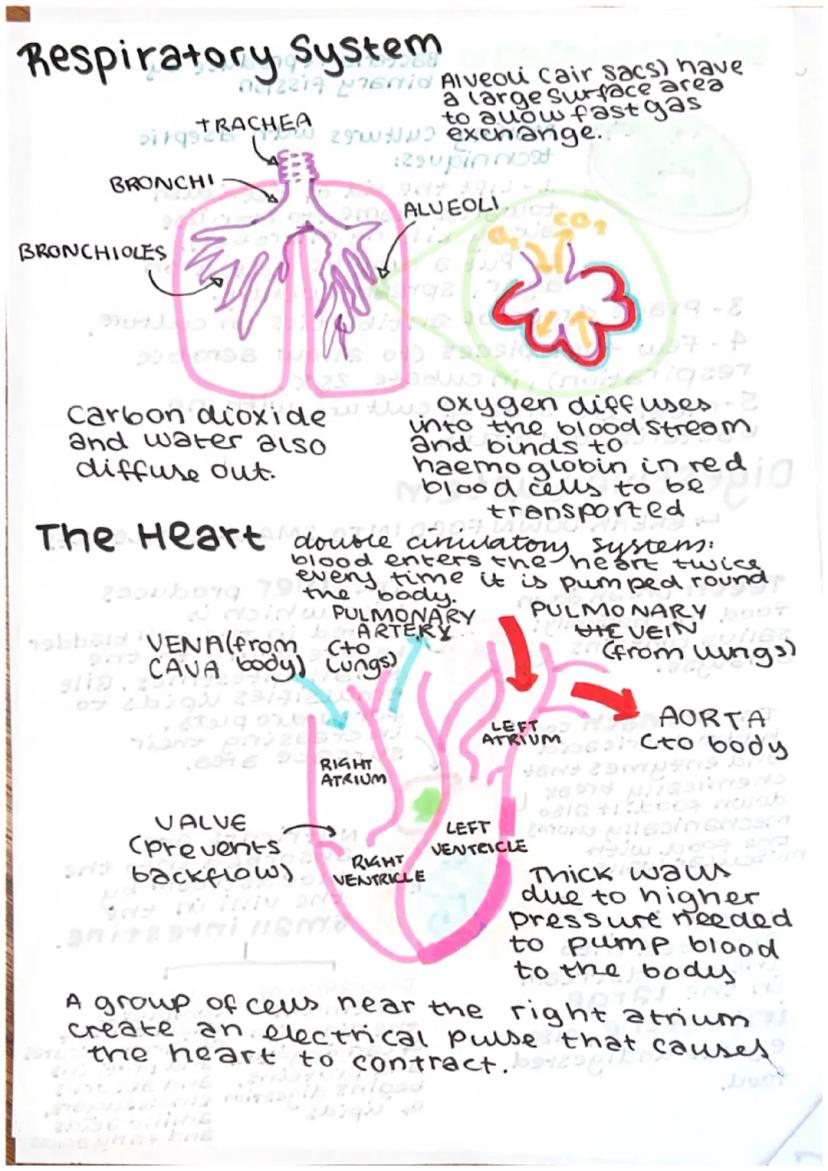 Respiratory System
Alveoli (air sacs) have
a large surface area
to allow fast gas
exchange.
TRACHEA
BRONCHI
ALVEOLI
BRONCHIOLES
O₂
CO₂
Carbon dioxide
and water also
diffuse out.
oxygen diffuses
into the bloodstream
and binds to
haemoglobin in red
blood cells to be
transported
The Heart
double circulatory system:
blood enters the heart twice
every time it is pumped round
the body.
PULMONARY
ARTERY
(to
lungs)
PULMONARY
VEIN
(from lungs)
VENA (from
CAVA body)
AORTA
(to body
LEFT
ATRIUM
RIGHT
ATRIUM
VALVE
(prevents
backflow)
LEFT
VENTRICLE
RIGHT
VENTRICLE
Thick walls
due to higher
pressure needed
to pump blood
to the body
A group of cells near the right atrium
create an electrical pulse that causes
the heart to contract.